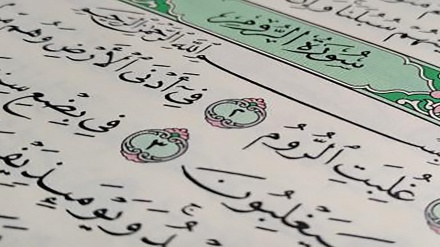 سُورَةُ الرُّومِ
بِسْمِ ٱللَّهِ ٱلرَّحْمَٰنِ ٱلرَّحِيمِ
غُلِبَتِ ٱلرُّومُ ٢ فِىٓ أَدْنَى ٱلْأَرْضِ وَهُم
سَيَغْلِبُونَ ٣ فِى بِضْعِ
وَيَوْمَئِذٍ